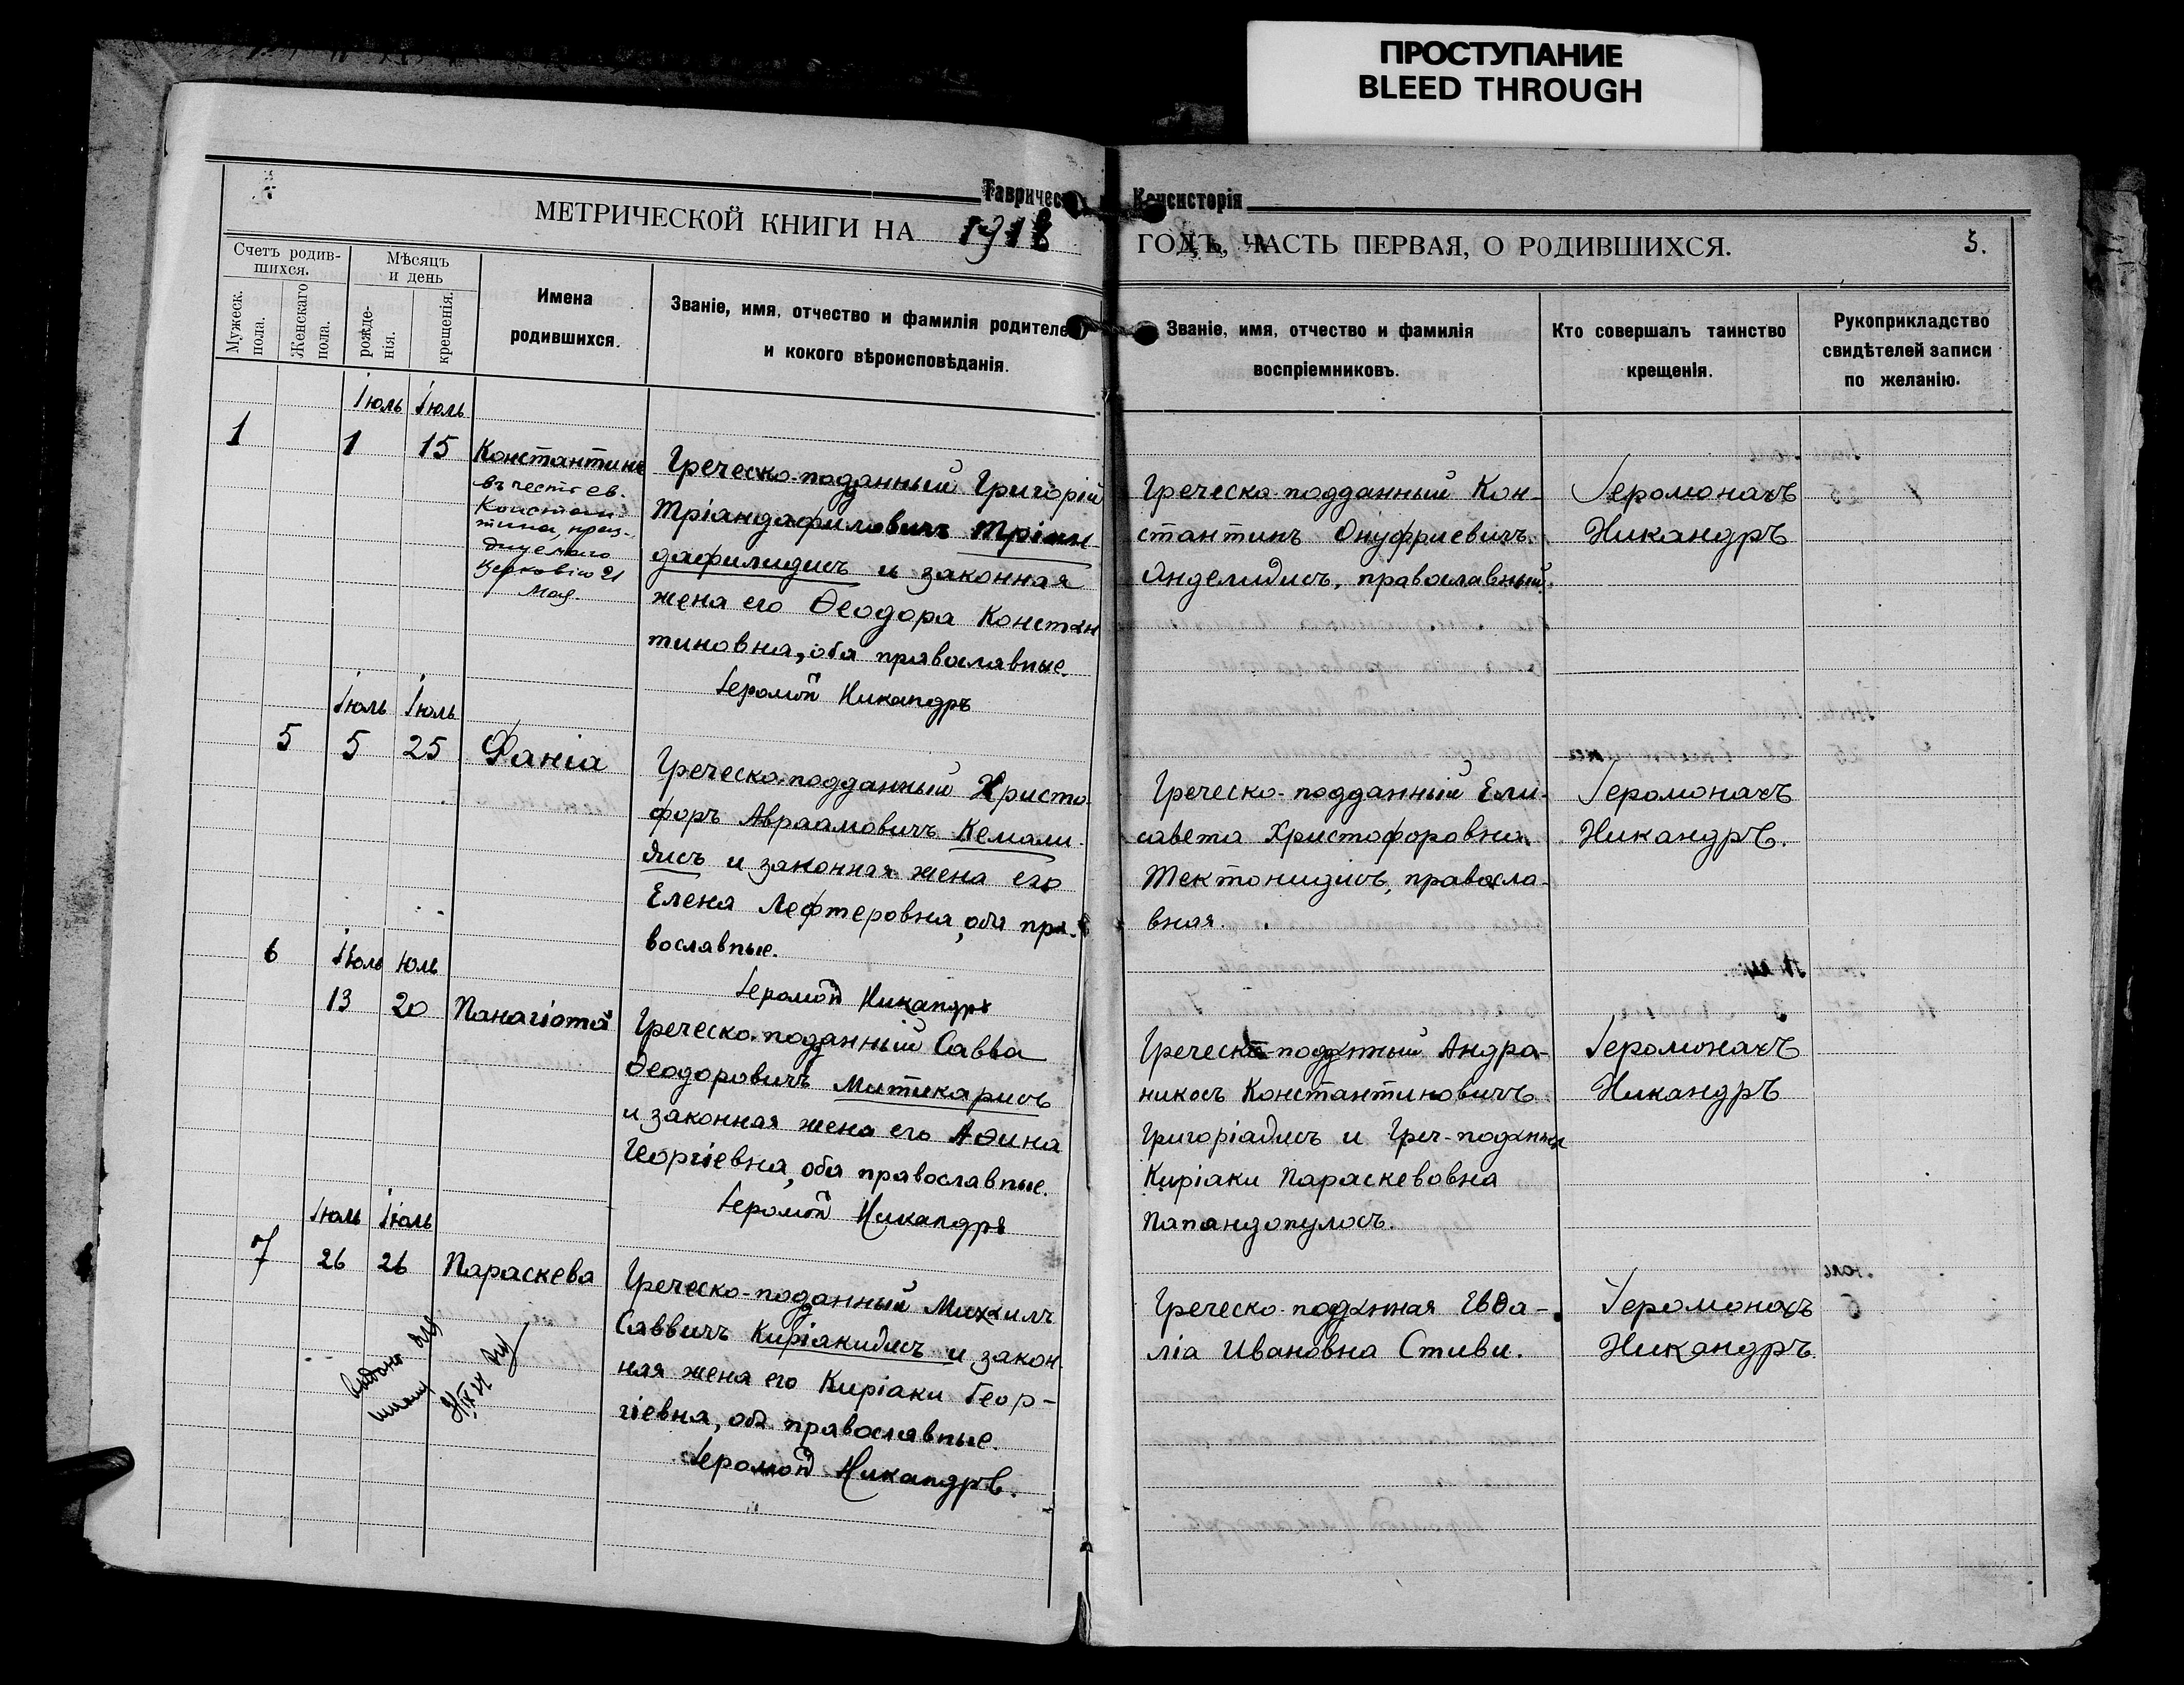 ПРОСТУПАНИЕ
BLEED THROUGH
Тавричес
Консисторія
МЕТРИЧЕСКОЙ КНИГИ НА 1918
ГОДЪ, ЧАСТЬ ПЕРВАЯ, О РОДИВШИХСЯ.
3.
Счетъ родив-
шихся.
Мужеск.
пола.
Женскаго
пола.
Мѣсяцъ
и день
рожде-
нія.
крещенія.
Имена
родившихся.
Званіе, имя, отчество и фамилія родителе
и кокого вѣроисповѣданія.
Званіе, имя, отчество и фамилія
воспріемниковъ.
Кто совершалъ таинство
крещенія.
Рукоприкладство
свидѣтелей записи
по желанію.
Іюль Іюль
1 1 15 Константинъ
въ честь св.
Констан-
тина, праз-
днуемаго
Церковію 21
Мая.
Греческо-поданный Григорій
Тріандафиловичъ Тріан
дафилидисъ и законная
жена его Ѳеодора Констан
тиновна, оба православные.
Іеромон Никандръ
Греческо-подданный Кон-
стантинъ Онуфриевичъ
Анделидисъ, православный.
Іеромонахъ
Никандръ
Іюль Іюль
5 5 25 Фаніа
Греческо-подданный Христо-
форъ Авраамовичъ Кемали-
дисъ и законная жена его
Елена Лефтеровна, оба пра-
вославные.
Іеромон Никандръ
Греческо-подданный Ели-
савета Христофоровна
Тектонидисъ, правосла-
вная.
Іеромонахъ
Никандръ.
6 Іюль юль
13 20 Панагіота
Греческо-поданный Савва
Ѳеодоровичъ Митикарисъ
и законная жена его Аѳина
Георгіевна, оба православные.
Іеромон Никандръ
Греческо-поданный Андра-
никосъ Константиновичъ
Григоріадисъ и Греч-поданная
Киріаки Параскевовна
Папандопулосъ.
Іеромонахъ
Никандръ
Іюль Іюль
7 26 26 Параскева
Греческо-поданный Михаилъ
Саввичъ Киріакидисъ и закон
ная жена его Киріаки Геор-
гіевна, оба православные.
Іеромон Никандръ.
Греческо поданная Евѳа-
ліа Ивановна Стиви.
Іеромонахъ
Никандръ